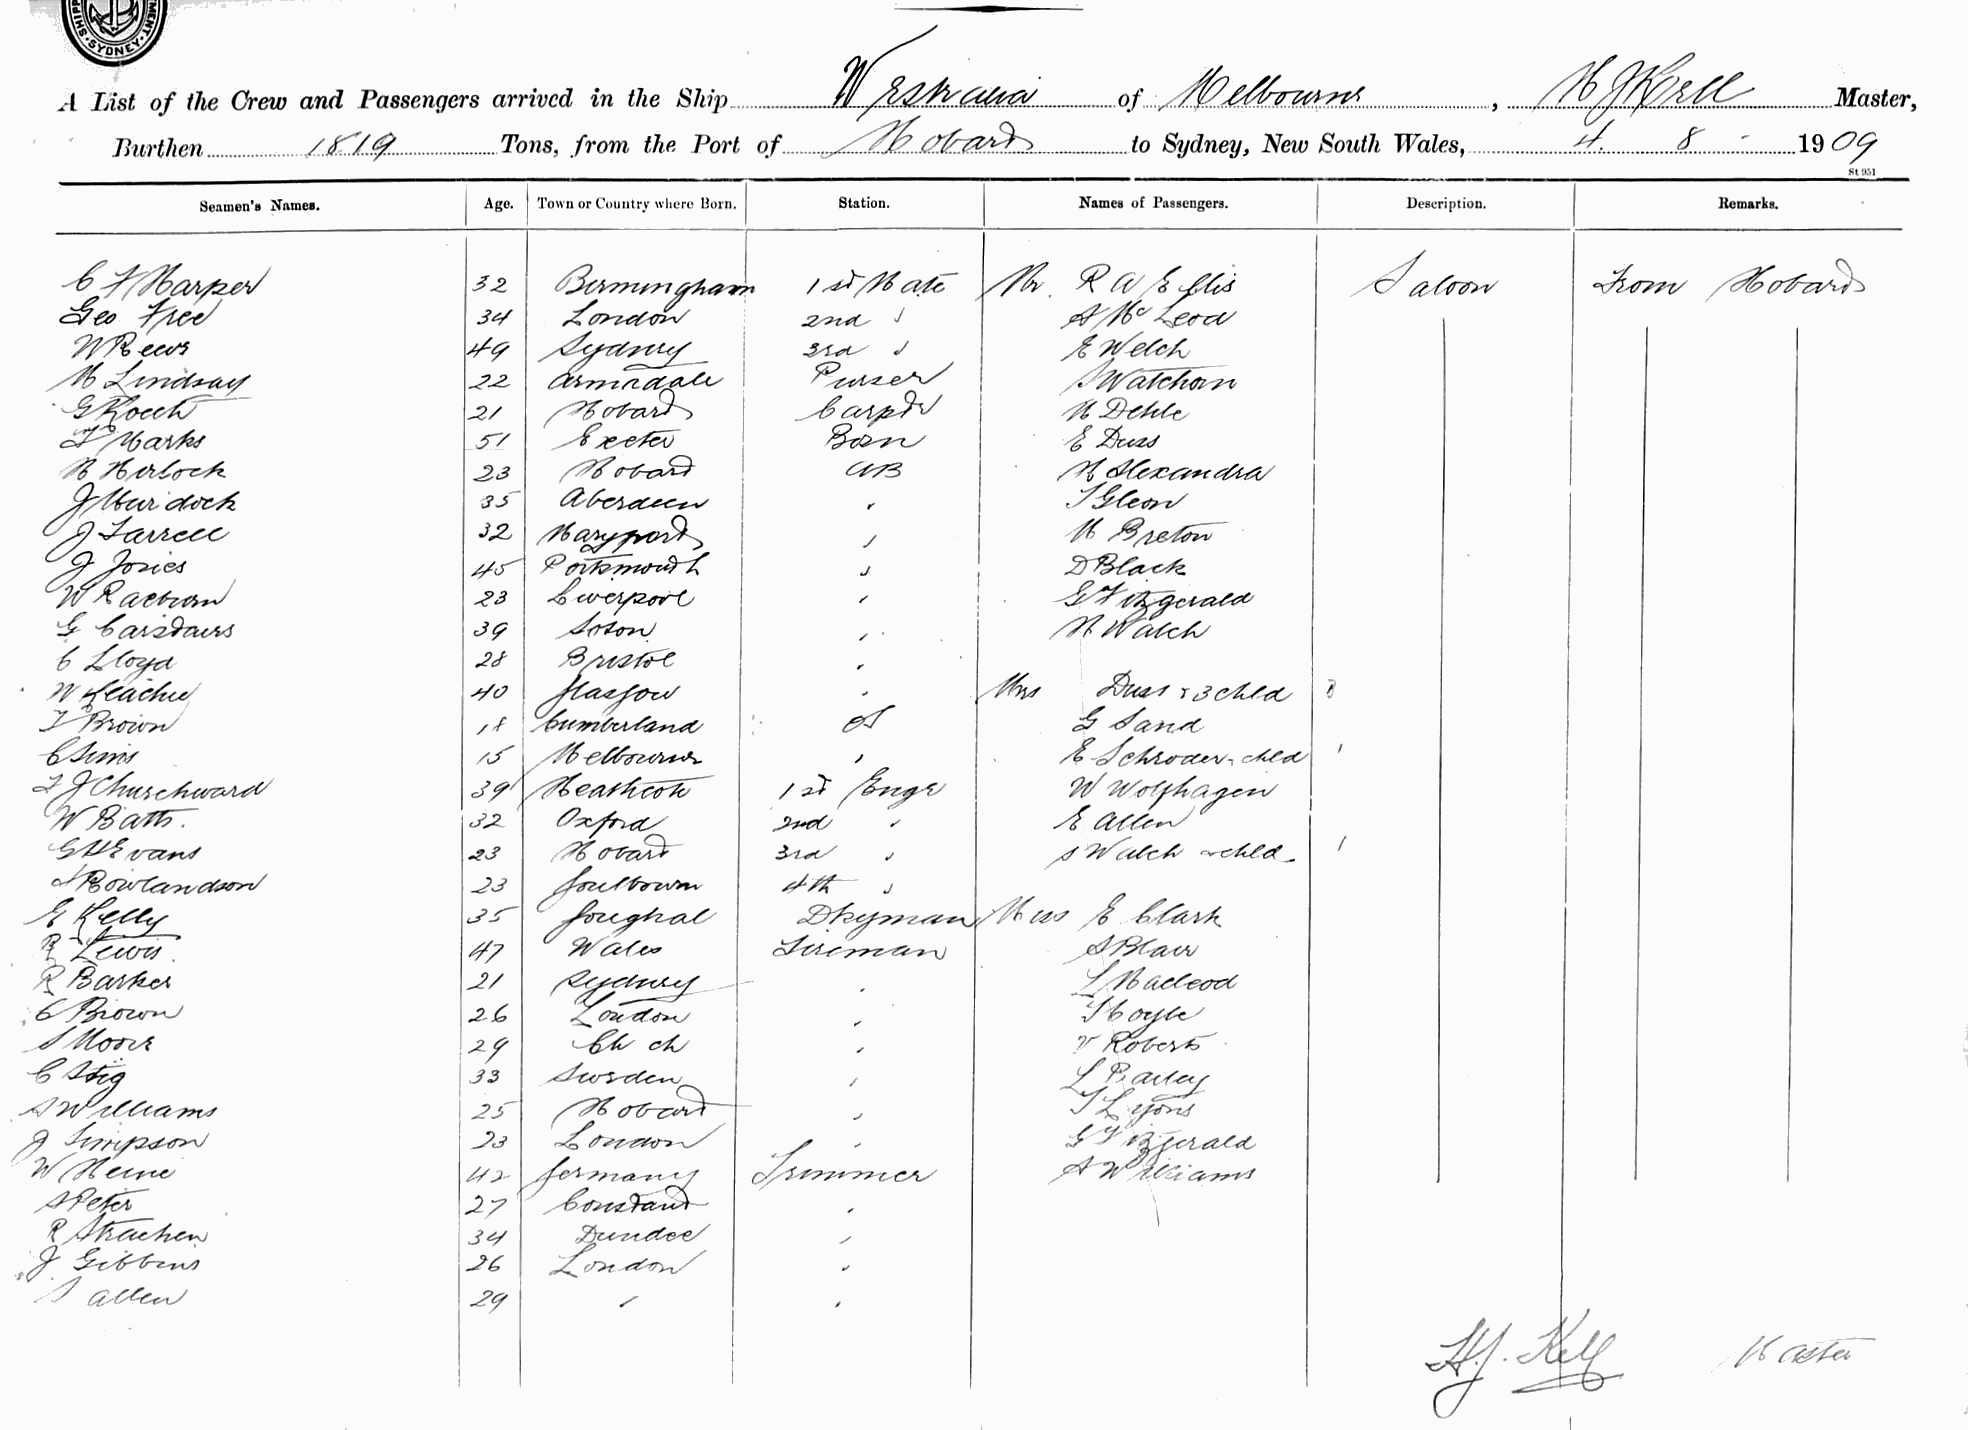 SHIPP MENT · SYDNEY ·
A List of the Crew and Passengers arrived in the Ship Westralia of Melbourne, H J Kell Master,
Burthen 1819 Tons, from the Port of Hobart to Sydney, New South Wales, 4 . 8 - 1909
St 951
Seamen's Names. Age. Town or Country where Born. Station. Names of Passengers. Description. Remarks.
C F Harper 32 Birmingham 1st Mate Mr R A Ellis Saloon From Hobart
Geo Free 34 London 2nd " A McLeod
W Reeve 49 Sydney 3rd " E Welch
H Lindsay 22 Armadale Purser Watchorn
G Koech 21 Hobart Carptr H Dehle
F Marks 51 Exeter Bosn E Duss
H Hirlock 23 Hobart AB H Alexandra
J Murdock 35 Aberdeen " Gleon
J Farrell 32 Maryport " H Breton
J Jones 45 Portsmouth " D Black
W Raeburn 23 Liverpool " G Fitzgerald
G Carstairs 39 Soton " H Walch
C Lloyd 28 Bristol "
W Leachie 40 Glasgow " Mrs Duss & 3 chld 3
F Brown 18 Cumberland OS G Sand
C Sims 15 Melbourne " E Schroder & chld 1
F J Churchward 39 Heathcote 1st Engr W Wolfhagen
W Batts. 32 Oxford 2nd " E Allen
G H Evans 23 Hobart 3rd " S Walch & chld 1
Rowlandson 23 Goulburn 4th "
E Kelly 35 Youghal Dkyman Miss E Clark
R Lewis 47 Wales Fireman S Blair
R Barker 21 Sydney " L Macleod
C Brown 26 London " Hoyle
S Moore 29 Ch ch " V Roberts
C Stig 33 Sweden " L Bailey
S Williams 25 Hobart " Lyons
J Simpson 23 London " G Fitzgerald
W Heine 42 Germany Trimmer A Williams
S Peter 27 Constant "
R Strachen 34 Dundee "
J Gibbins 26 London "
S Allen 29 " "
H.J. Kell Master